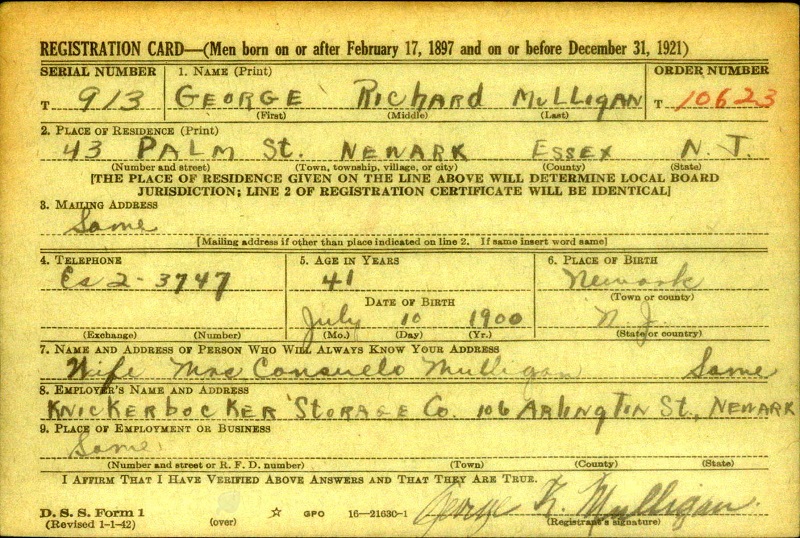 REGISTRATION CARD—(Men born on or after February 17, 1897 and on or before December 31, 1921)
SERIAL NUMBER 1. NAME (Print) ORDER NUMBER
T 913 GEORGE RICHARD MULLIGAN T 10623
(First) (Middle) (Last)
2. PLACE OF RESIDENCE (Print)
43 PALM St. NEWARK ESSEX N. J.
(Number and street) (Town, township, village, or city) (County) (State)
[THE PLACE OF RESIDENCE GIVEN ON THE LINE ABOVE WILL DETERMINE LOCAL BOARD
JURISDICTION; LINE 2 OF REGISTRATION CERTIFICATE WILL BE IDENTICAL]
3. MAILING ADDRESS
Same
[Mailing address if other than place indicated on line 2. If same insert word same]
4. TELEPHONE 5. AGE IN YEARS 6. PLACE OF BIRTH
Es 2-3747 41 Newark
DATE OF BIRTH (Town or county)
July 10 1900 N J.
(Exchange) (Number) (Mo.) (Day) (Yr.) (State or country)
7. NAME AND ADDRESS OF PERSON WHO WILL ALWAYS KNOW YOUR ADDRESS
Wife Mrs Consuelo Mulligan Same
8. EMPLOYER'S NAME AND ADDRESS
KNICKERBOCKER STORAGE Co. 106 ARLINGTON St., NEWARK
9. PLACE OF EMPLOYMENT OR BUSINESS
Same
(Number and street or R. F. D. number) (Town) (County) (State)
I AFFIRM THAT I HAVE VERIFIED ABOVE ANSWERS AND THAT THEY ARE TRUE.
D. S. S. Form 1 George R. Mulligan.
(Revised 1-1-42) (over) ☆ GPO 16—21630-1 (Registrant's signature)